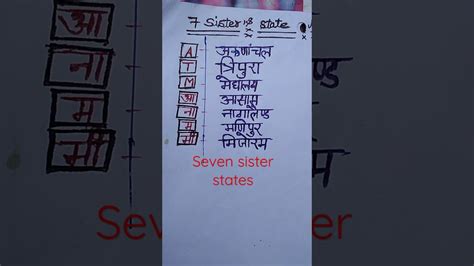 7 Sister state
A अरुणांचल
T त्रिपुरा
M मेघालय
आ आसाम
ना नागालैण्ड
म मणिपुर
मी मिजोरम
Seven sister
states